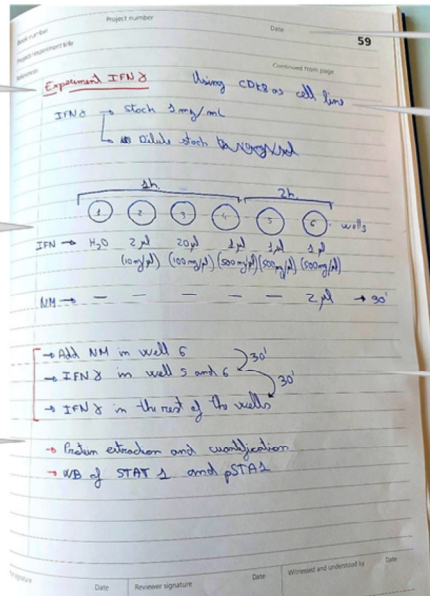 Project number
Book number
Date
59
Project/experiment title
References
Continued from page
Experiment IFN γ
Using CDK8 as cell line
IFN γ → Stock 1 mg/mL
Dilute stock
1h 2h
1 2 3 4 5 6 wells
IFN → H₂O 2 µl 20 µl 1 µl 1 µl 1 µl
(10mg/µl) (100mg/µl) (500mg/µl) (500mg/µl) (500mg/µl)
NM → – – – – – 2 µl → 30'
→ Add NM in well 6
30'
→ IFN γ in well 5 and 6
30'
→ IFN γ in the rest of the wells
→ Protein extraction and cuantification
→ WB of STAT 1 and pSTA1
signature
Date
Reviewer signature
Date
Witnessed and understood by
Date